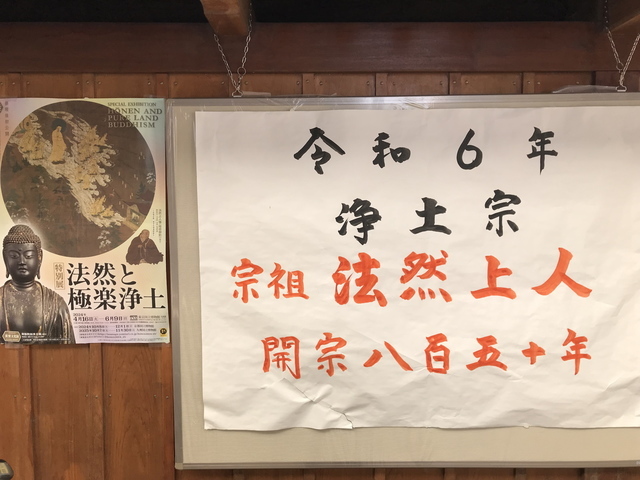 SPECIAL EXHIBITION
HONEN AND
PURE LAND
BUDDHISM
特別展
法然と
極楽浄土
4月16日 6月9日
令和6年
浄土宗
宗祖法然上人
開宗八百五十年